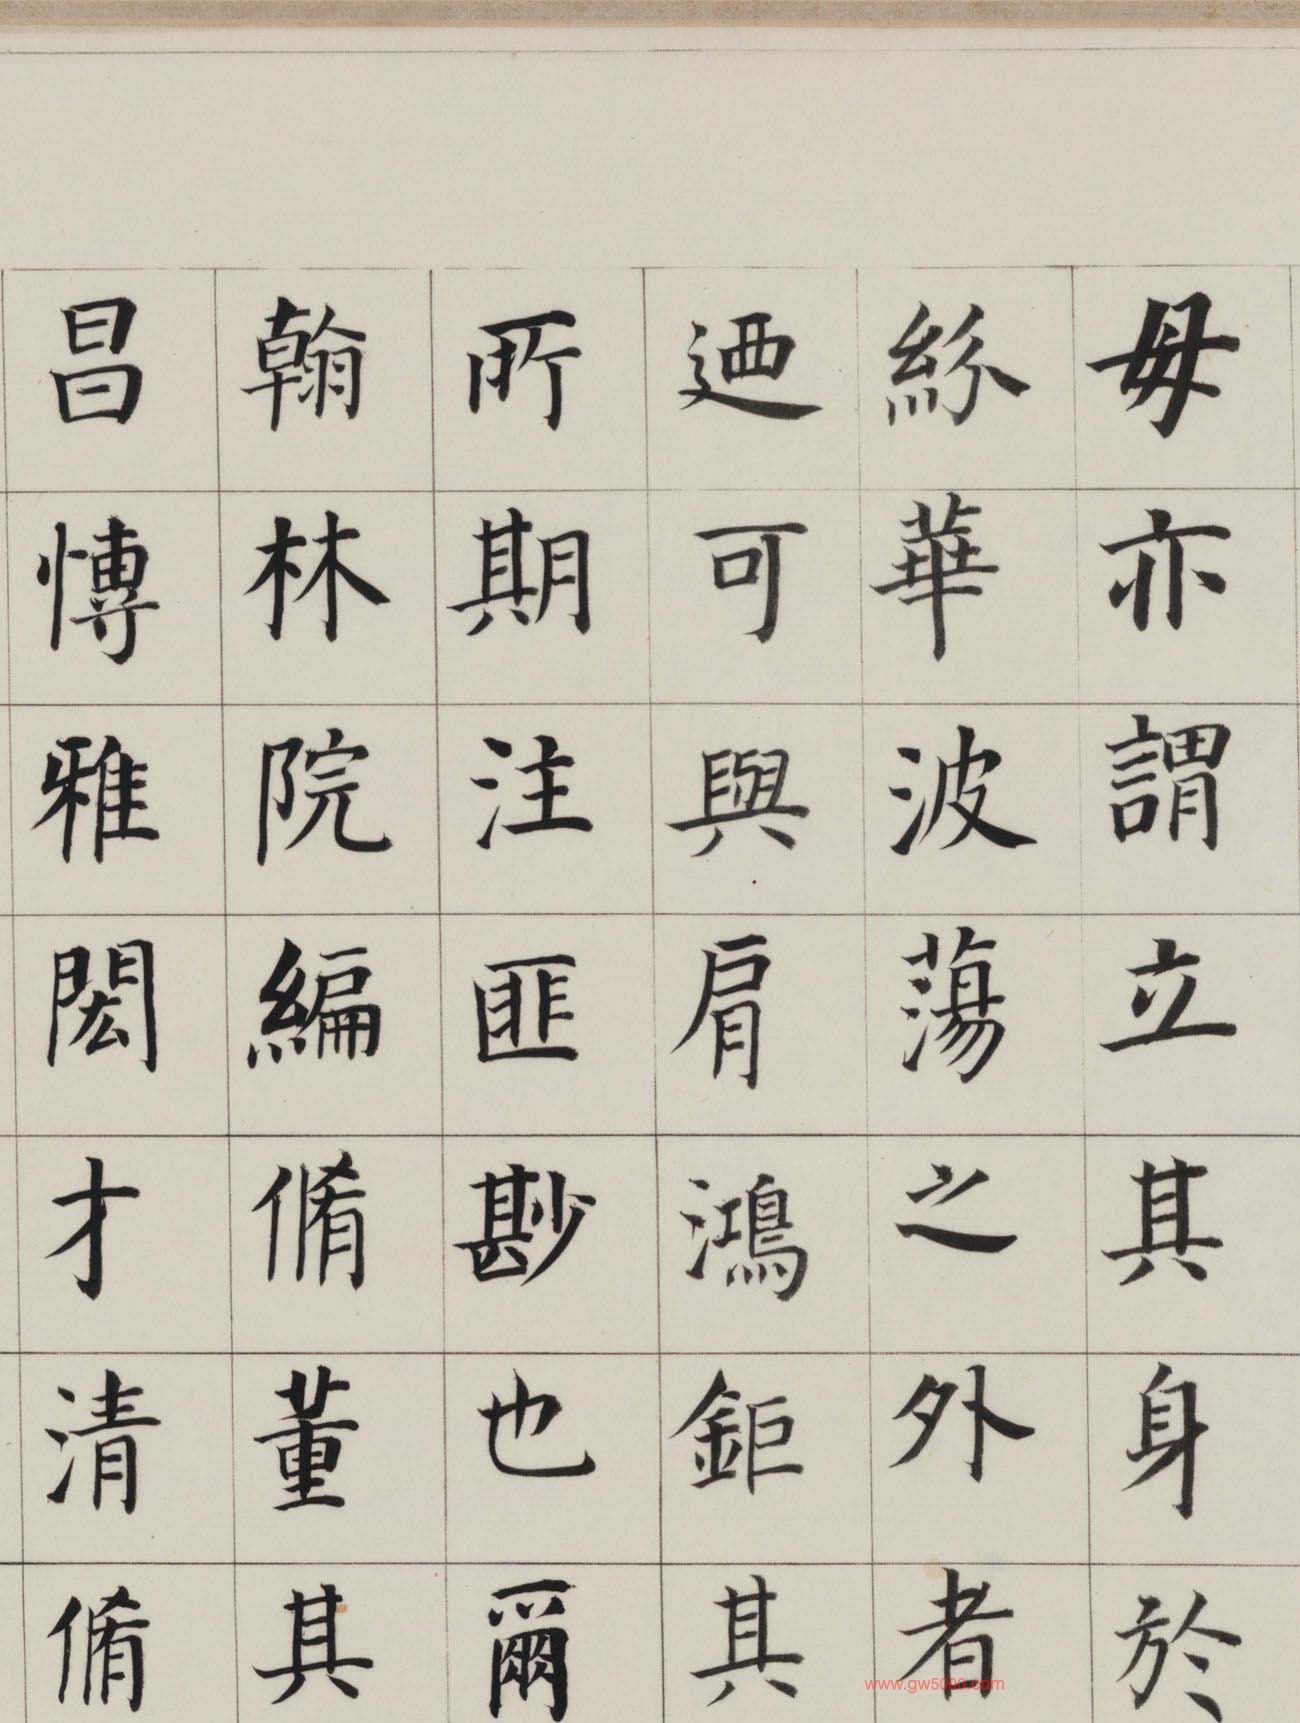 毋亦謂立其身於
紛華波蕩之外者
迺可與肩鴻鉅其
所期注匪尠也爾
翰林院編脩董其
昌愽雅閎才清脩
www.gw5000.com